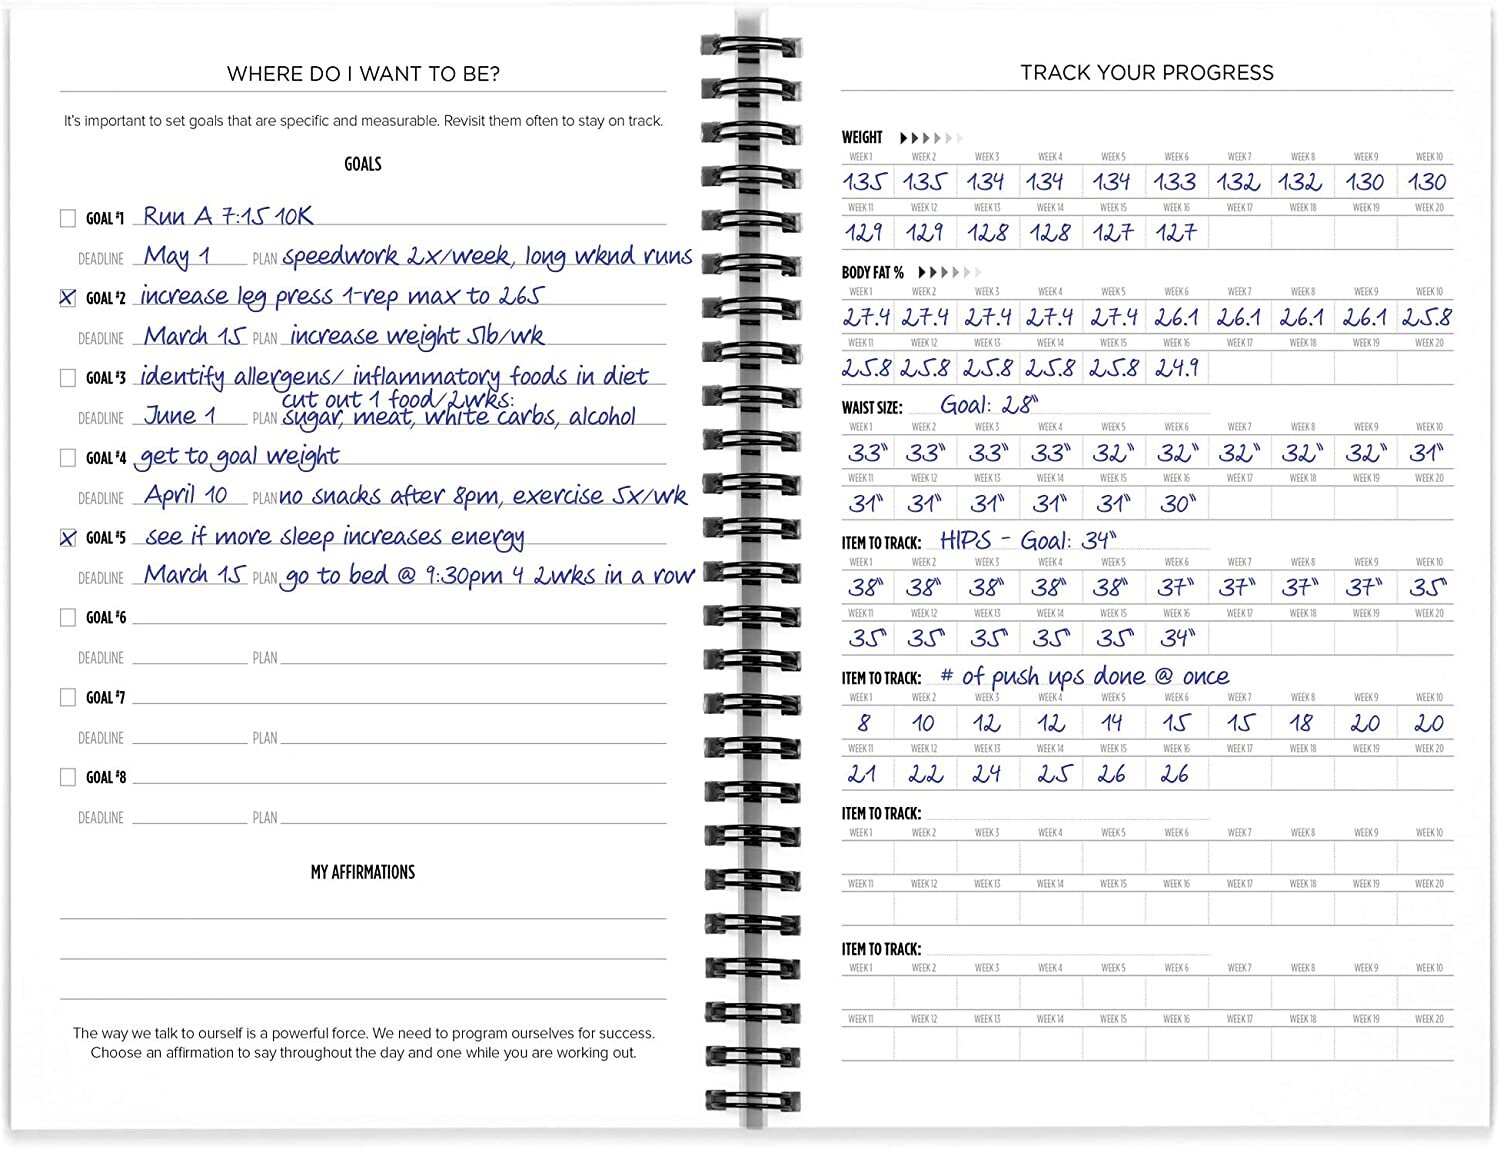 WHERE DO I WANT TO BE?
It's important to set goals that are specific and measurable. Revisit them often to stay on track.
GOALS
GOAL #1 Run A 7:15 10K
DEADLINE May 1 PLAN speedwork 2x/week, long wknd runs
GOAL #2 increase leg press 1-rep max to 265
DEADLINE March 15 PLAN increase weight 5lb/wk
GOAL #3 identify allergens/ inflammatory foods in diet
cut out 1 food/2wks:
DEADLINE June 1 PLAN sugar, meat, white carbs, alcohol
GOAL #4 get to goal weight
DEADLINE April 10 PLAN no snacks after 8pm, exercise 5x/wk
GOAL #5 see if more sleep increases energy
DEADLINE March 15 PLAN go to bed @ 9:30pm 4 2wks in a row
GOAL #6
DEADLINE PLAN
GOAL #7
DEADLINE PLAN
GOAL #8
DEADLINE PLAN
MY AFFIRMATIONS
The way we talk to ourself is a powerful force. We need to program ourselves for success.
Choose an affirmation to say throughout the day and one while you are working out.
TRACK YOUR PROGRESS
WEIGHT
WEEK 1 WEEK 2 WEEK 3 WEEK 4 WEEK 5 WEEK 6 WEEK 7 WEEK 8 WEEK 9 WEEK 10
135 135 134 134 134 133 132 132 130 130
WEEK 11 WEEK 12 WEEK 13 WEEK 14 WEEK 15 WEEK 16 WEEK 17 WEEK 18 WEEK 19 WEEK 20
129 129 128 128 127 127
BODY FAT %
WEEK 1 WEEK 2 WEEK 3 WEEK 4 WEEK 5 WEEK 6 WEEK 7 WEEK 8 WEEK 9 WEEK 10
27.4 27.4 27.4 27.4 27.4 26.1 26.1 26.1 26.1 25.8
WEEK 11 WEEK 12 WEEK 13 WEEK 14 WEEK 15 WEEK 16 WEEK 17 WEEK 18 WEEK 19 WEEK 20
25.8 25.8 25.8 25.8 25.8 24.9
WAIST SIZE: Goal: 28"
WEEK 1 WEEK 2 WEEK 3 WEEK 4 WEEK 5 WEEK 6 WEEK 7 WEEK 8 WEEK 9 WEEK 10
33" 33" 33" 33" 32" 32" 32" 32" 32" 31"
WEEK 11 WEEK 12 WEEK 13 WEEK 14 WEEK 15 WEEK 16 WEEK 17 WEEK 18 WEEK 19 WEEK 20
31" 31" 31" 31" 31" 30"
ITEM TO TRACK: HIPS - Goal: 34"
WEEK 1 WEEK 2 WEEK 3 WEEK 4 WEEK 5 WEEK 6 WEEK 7 WEEK 8 WEEK 9 WEEK 10
38" 38" 38" 38" 38" 37" 37" 37" 37" 35"
WEEK 11 WEEK 12 WEEK 13 WEEK 14 WEEK 15 WEEK 16 WEEK 17 WEEK 18 WEEK 19 WEEK 20
35" 35" 35" 35" 35" 34"
ITEM TO TRACK: # of push ups done @ once
WEEK 1 WEEK 2 WEEK 3 WEEK 4 WEEK 5 WEEK 6 WEEK 7 WEEK 8 WEEK 9 WEEK 10
8 10 12 12 14 15 15 18 20 20
WEEK 11 WEEK 12 WEEK 13 WEEK 14 WEEK 15 WEEK 16 WEEK 17 WEEK 18 WEEK 19 WEEK 20
21 22 24 25 26 26
ITEM TO TRACK:
WEEK 1 WEEK 2 WEEK 3 WEEK 4 WEEK 5 WEEK 6 WEEK 7 WEEK 8 WEEK 9 WEEK 10
WEEK 11 WEEK 12 WEEK 13 WEEK 14 WEEK 15 WEEK 16 WEEK 17 WEEK 18 WEEK 19 WEEK 20
ITEM TO TRACK:
WEEK 1 WEEK 2 WEEK 3 WEEK 4 WEEK 5 WEEK 6 WEEK 7 WEEK 8 WEEK 9 WEEK 10
WEEK 11 WEEK 12 WEEK 13 WEEK 14 WEEK 15 WEEK 16 WEEK 17 WEEK 18 WEEK 19 WEEK 20